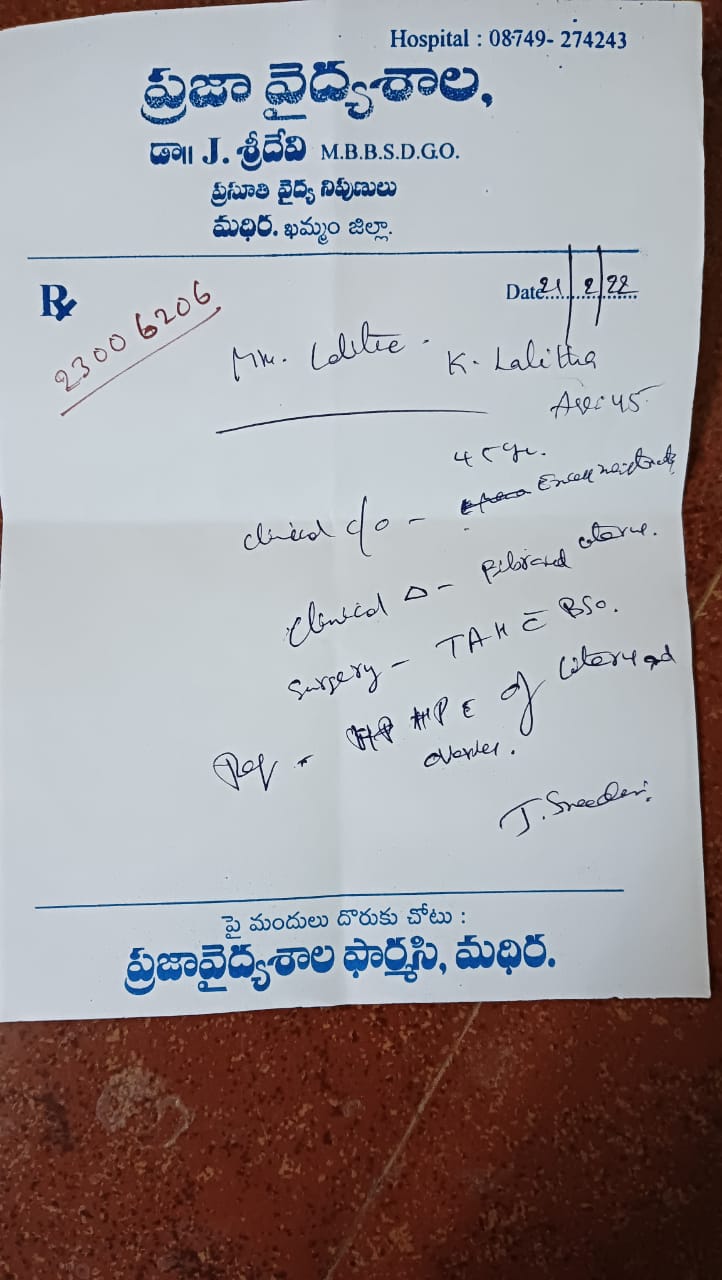 Hospital : 08749- 274243
ప్రజా వైద్యశాల,
డా॥ J. శ్రీదేవి M.B.B.S.D.G.O.
ప్రసూతి వైద్య నిపుణులు
మధిర. ఖమ్మం జిల్లా.
Rx
Date 21/2/22
23006206
K. Lalitha
Age: 45
clinical c/o -
clinical Δ - Fibroid uterus.
Surgery - TAH c̄ BSO.
HPE of uterus and
ovaries.
J. Sreedevi
పై మందులు దొరుకు చోటు :
ప్రజావైద్యశాల ఫార్మసి, మధిర.